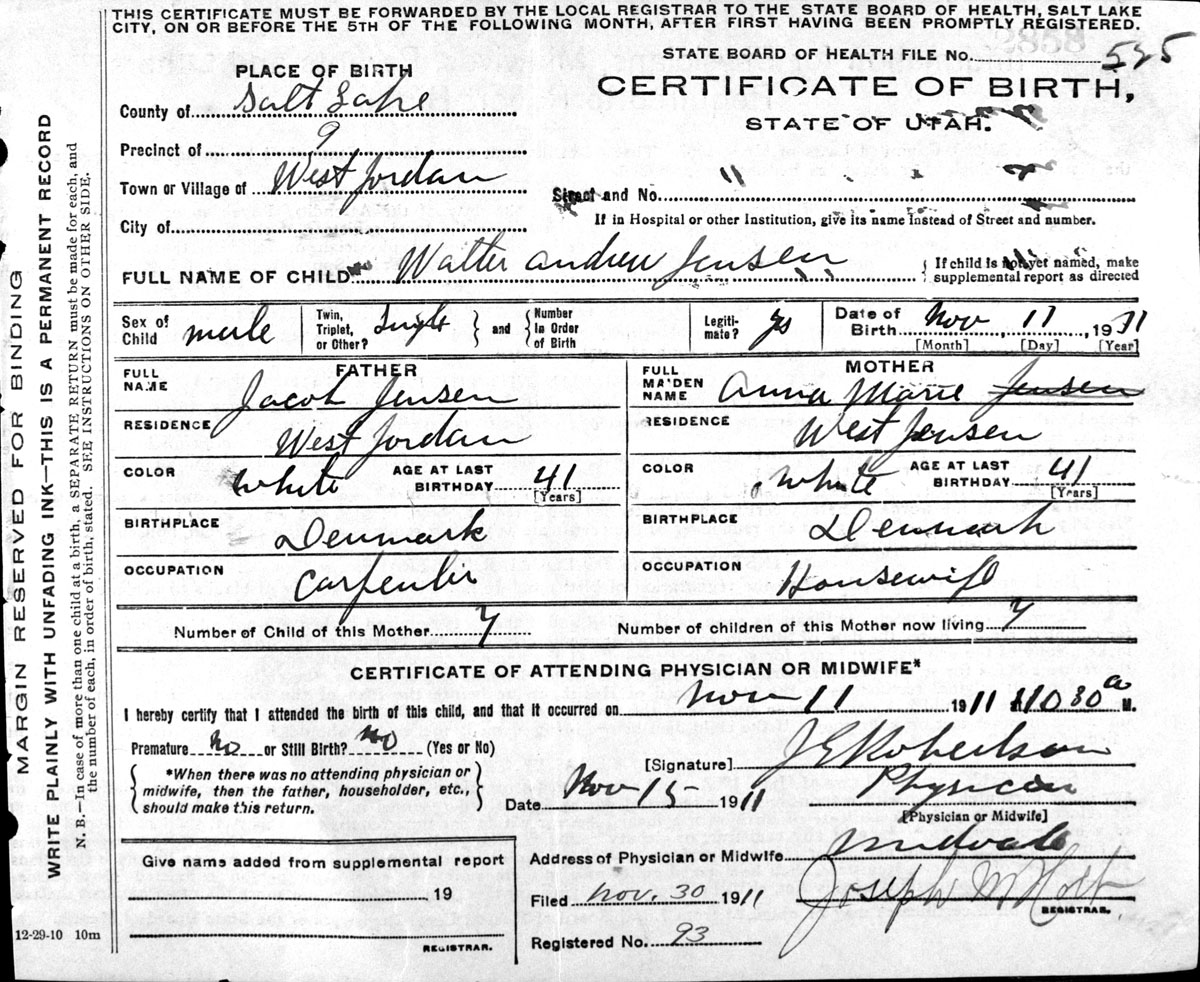 THIS CERTIFICATE MUST BE FORWARDED BY THE LOCAL REGISTRAR TO THE STATE BOARD OF HEALTH, SALT LAKE
CITY, ON OR BEFORE THE 5TH OF THE FOLLOWING MONTH, AFTER FIRST HAVING BEEN PROMPTLY REGISTERED.
2858
STATE BOARD OF HEALTH FILE No. 525
PLACE OF BIRTH
CERTIFICATE OF BIRTH,
STATE OF UTAH.
County of Salt Lake
Precinct of 9
Town or Village of West Jordan
Street and No. "
City of
If in Hospital or other Institution, give its name Instead of Street and number.
FULL NAME OF CHILD Walter Andrew Jensen
If child is not yet named, make
supplemental report as directed
Sex of Child male Twin, Triplet, or Other? Single and Number In Order of Birth Legiti-mate? yes Date of Birth Nov 11, 1911
[Month] [Day] [Year]
FATHER
MOTHER
FULL NAME Jacob Jensen
FULL MA'DEN NAME Anna Marie Jensen
RESIDENCE West Jordan
RESIDENCE West Jensen
COLOR White AGE AT LAST BIRTHDAY 41 [Years]
COLOR White AGE AT LAST BIRTHDAY 41 [Years]
BIRTHPLACE Denmark
BIRTHPLACE Denmark
OCCUPATION Carpenter
OCCUPATION Housewife
Number of Child of this Mother 7 Number of children of this Mother now living 7
CERTIFICATE OF ATTENDING PHYSICIAN OR MIDWIFE*
I hereby certify that I attended the birth of this child, and that it occurred on Nov 11 1911 1030 a M.
Premature No or Still Birth? No (Yes or No)
[Signature] J E Robertson
*When there was no attending physician or
midwife, then the father, householder, etc.,
should make this return.
Date Nov 15 1911 Physician
[Physician or Midwife]
Give name added from supplemental report
19
REGISTRAR.
Address of Physician or Midwife Midvale
Filed Nov. 30 1911 Joseph M Holt
REGISTRAR.
Registered No. 93
12-29-10 10m
MARGIN RESERVED FOR BINDING
WRITE PLAINLY WITH UNFADING INK—THIS IS A PERMANENT RECORD
N. B.—In case of more than one child at a birth, a SEPARATE RETURN must be made for each, and
the number of each, in order of birth, stated. SEE INSTRUCTIONS ON OTHER SIDE.